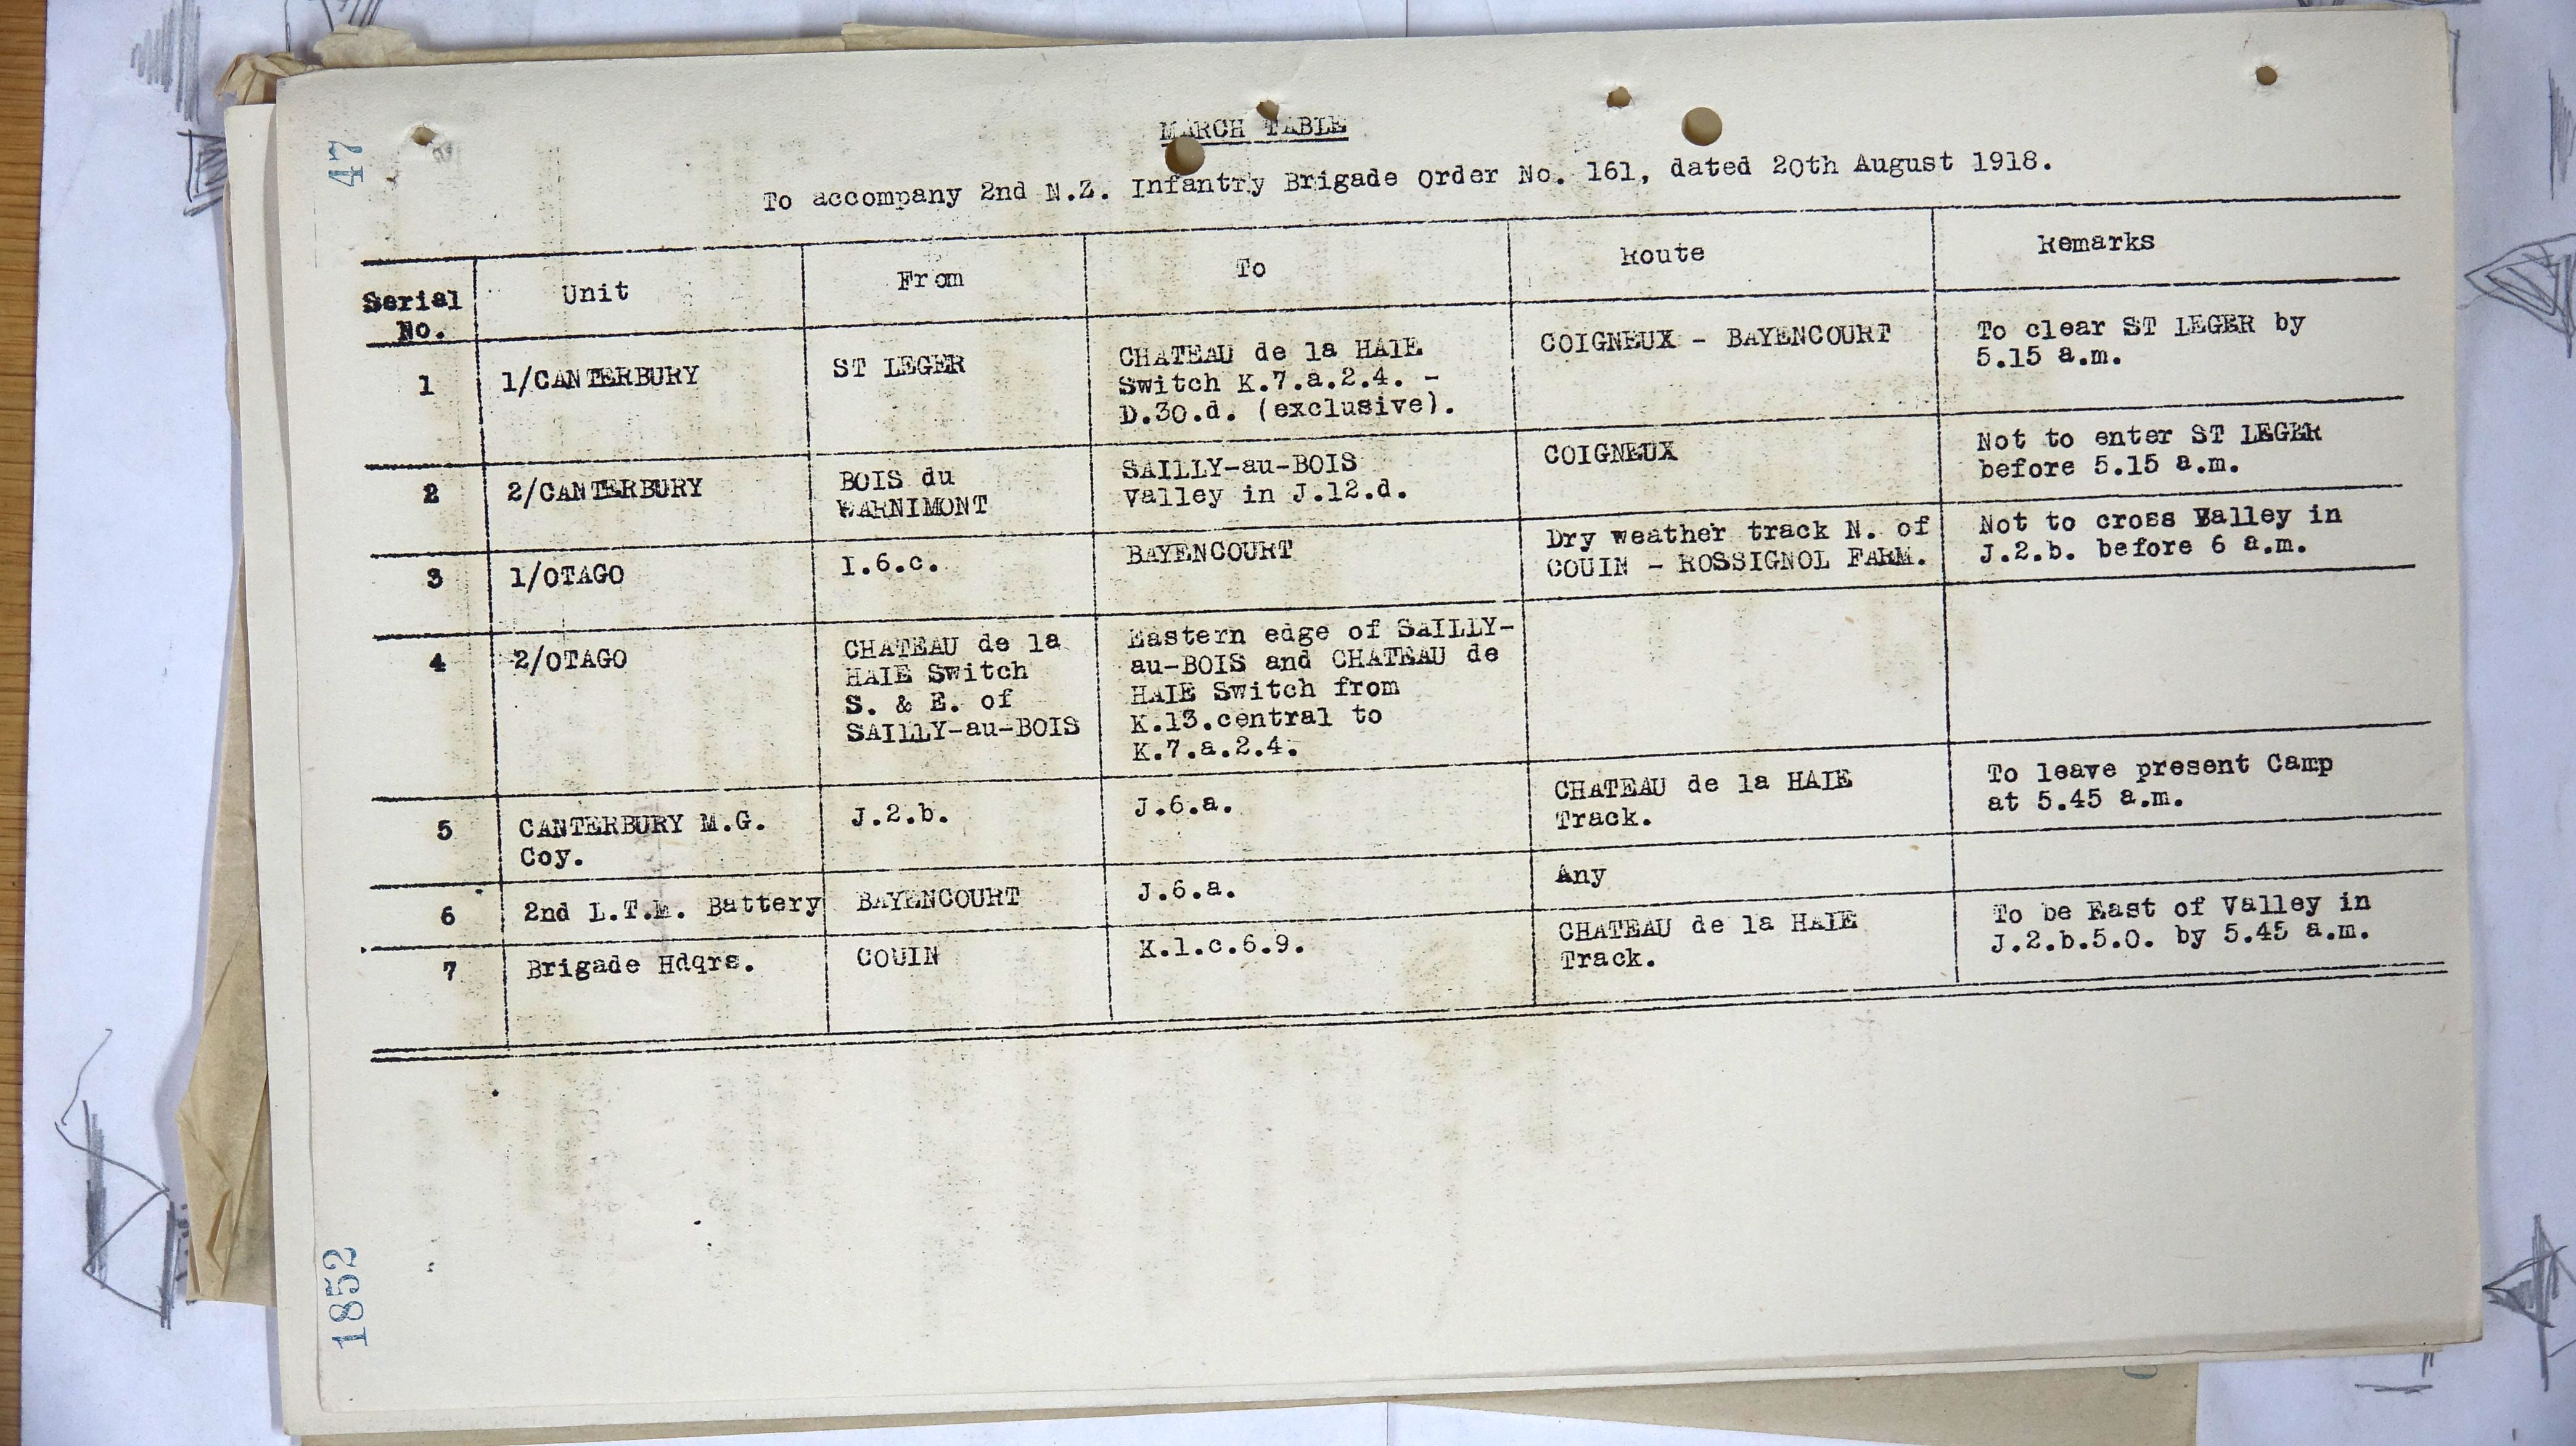 47
MARCH TABLE
To accompany 2nd N.Z. Infantry Brigade Order No. 161, dated 20th August 1918.
Serial
No.
Unit
From
To
Route
Remarks
1
1/CANTERBURY
ST LEGER
CHATEAU de la HAIE
Switch K.7.a.2.4. -
D.30.d. (exclusive).
COIGNEUX - BAYENCOURT
To clear ST LEGER by
5.15 a.m.
2
2/CANTERBURY
BOIS du
WARNIMONT
SAILLY-au-BOIS
Valley in J.12.d.
COIGNEUX
Not to enter ST LEGER
before 5.15 a.m.
3
1/OTAGO
I.6.c.
BAYENCOURT
Dry weather track N. of
COUIN - ROSSIGNOL FARM.
Not to cross Valley in
J.2.b. before 6 a.m.
4
2/OTAGO
CHATEAU de la
HAIE Switch
S. & E. of
SAILLY-au-BOIS
Eastern edge of SAILLY-
au-BOIS and CHATEAU de
HAIE Switch from
K.13.central to
K.7.a.2.4.
5
CANTERBURY M.G.
Coy.
J.2.b.
J.6.a.
CHATEAU de la HAIE
Track.
To leave present Camp
at 5.45 a.m.
6
2nd L.T.M. Battery
BAYENCOURT
J.6.a.
Any
7
Brigade Hdqrs.
COUIN
K.1.c.6.9.
CHATEAU de la HAIE
Track.
To be East of Valley in
J.2.b.5.0. by 5.45 a.m.
1852